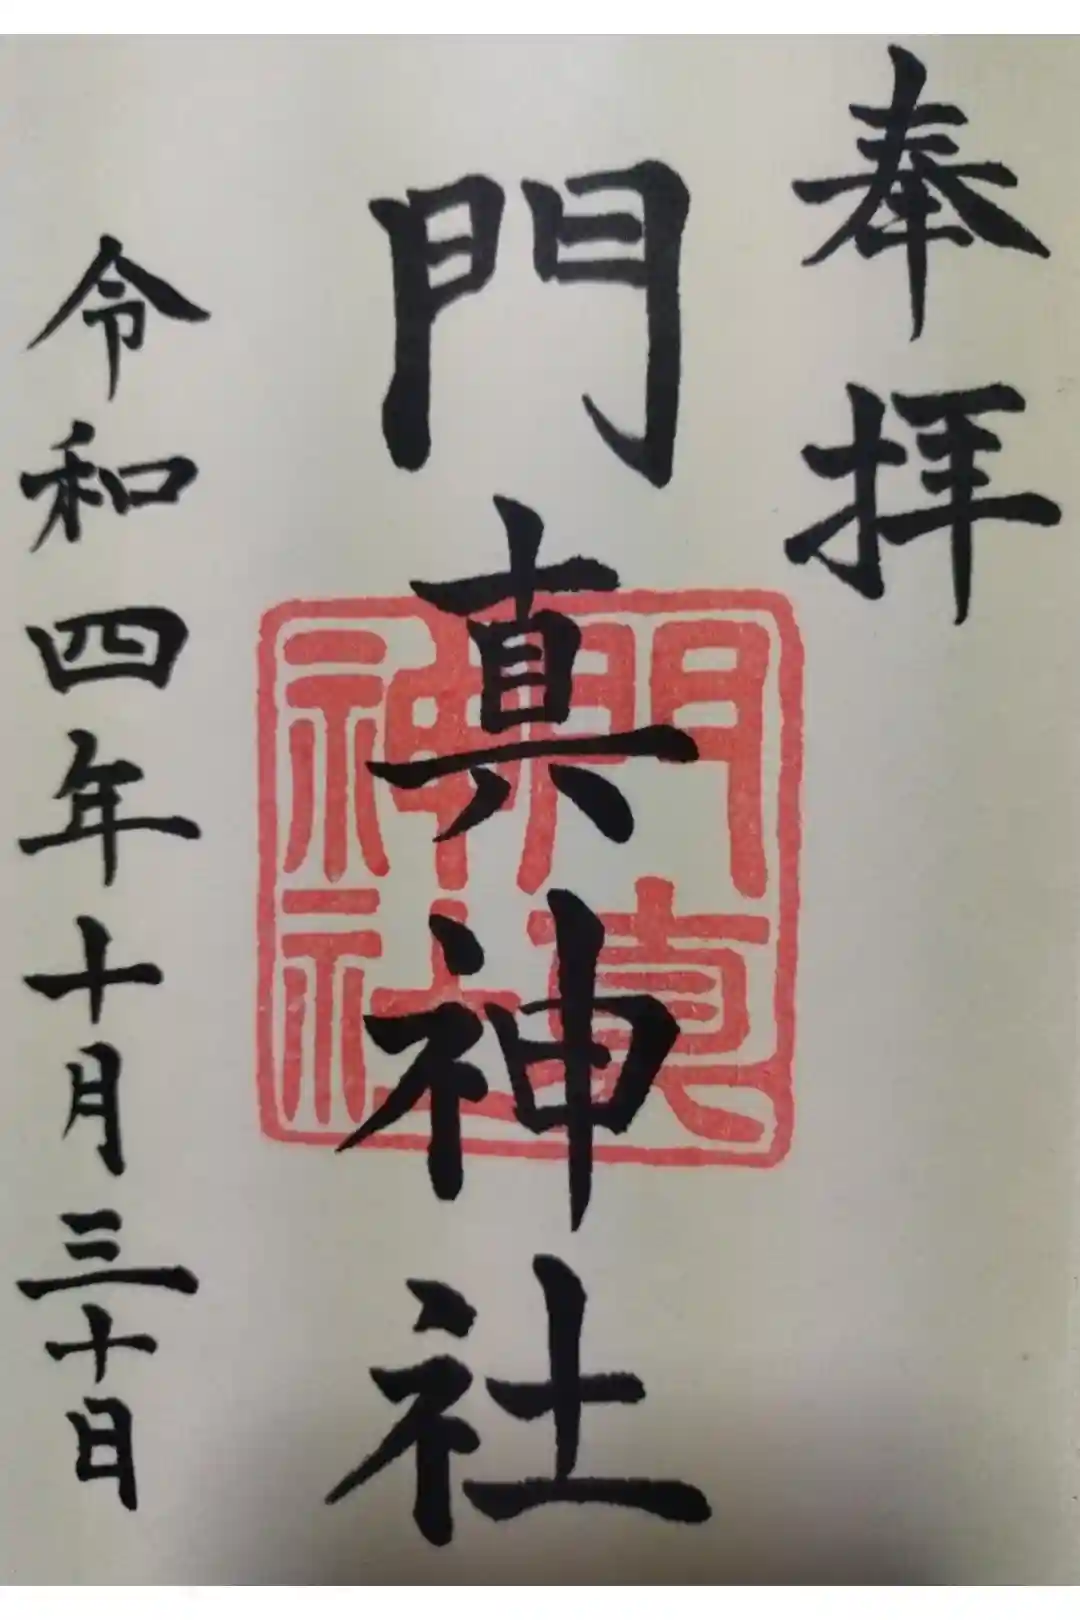 奉拝
門真神社
門真神社
令和四年十月三十日